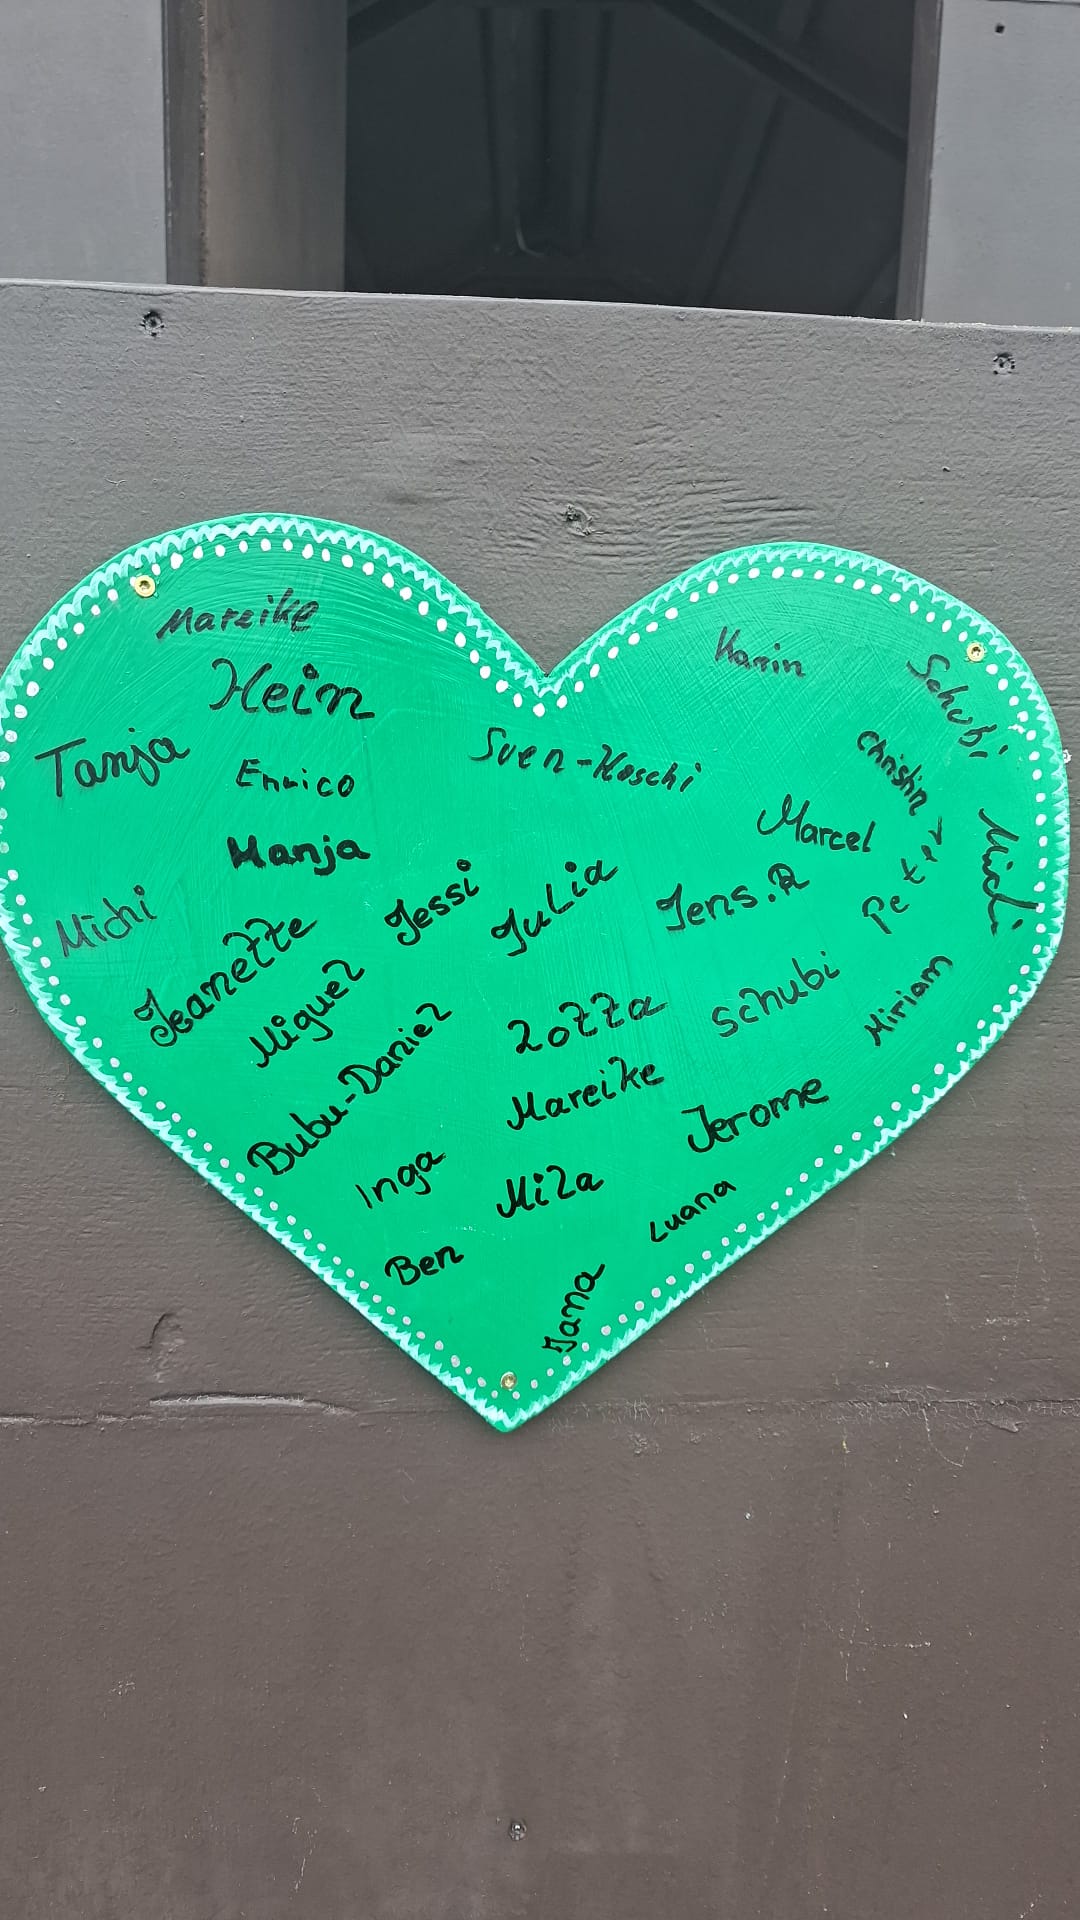 Mareike
Hein
Karin
Schubi
Tanja
Enrico
Sven-Koschi
Christin
Marcel
Michi
Manja
Peter
Michi
Jessi
Julia
Jens.R
Jeanette
Miguel
Lotta
Schubi
Miriam
Bubu-Daniel
Mareike
Jerome
Inga
Mila
Luana
Ben
Jana